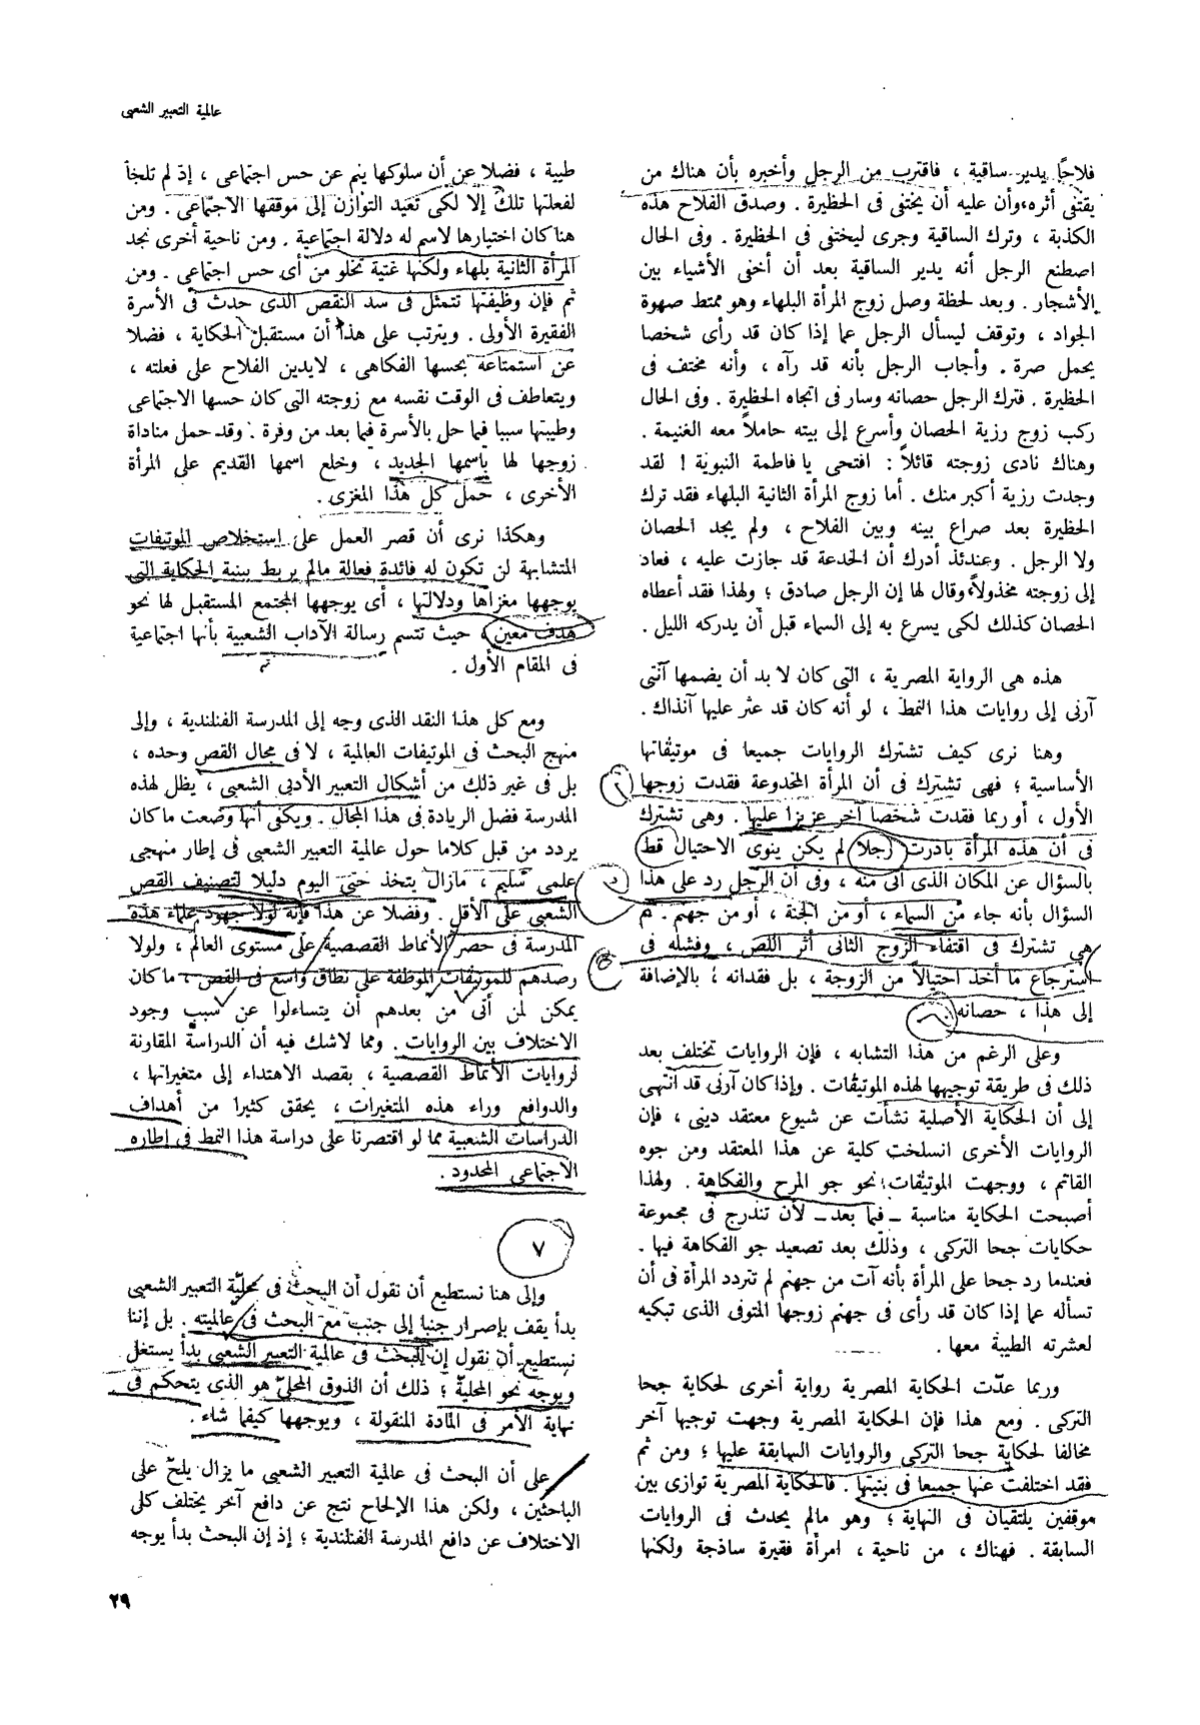 عالمية التعبير الشعبى
فلاحًا يدير ساقية ، فاقترب من الرجل وأخبره بأن هناك من
يقتفى أثره، وأن عليه أن يختفى فى الحظيرة . وصدق الفلاح هذه
الكذبة ، وترك الساقية وجرى ليختفى فى الحظيرة . وفى الحال
اصطنع الرجل أنه يدير الساقية بعد أن أخفى الأشياء بين
الأشجار . وبعد لحظة وصل زوج المرأة البلهاء وهو ممتط صهوة
الجواد ، وتوقف ليسأل الرجل عما إذا كان قد رأى شخصا
يحمل صرة . وأجاب الرجل بأنه قد رآه ، وأنه مختف فى
الحظيرة . فترك الرجل حصانه وسار فى اتجاه الحظيرة . وفى الحال
ركب زوج رزية الحصان وأسرع إلى بيته حاملاً معه الغنيمة .
وهناك نادى زوجته قائلاً : افتحى يا فاطمة النبوية ! لقد
وجدت رزية أكبر منك . أما زوج المرأة الثانية البلهاء فقد ترك
الحظيرة بعد صراع بينه وبين الفلاح ، ولم يجد الحصان
ولا الرجل . وعندئذ أدرك أن الخدعة قد جازت عليه ، فعاد
إلى زوجته مخذولاً، وقال لها إن الرجل صادق ؛ ولهذا فقد أعطاه
الحصان كذلك لكى يسرع به إلى السماء قبل أن يدركه الليل .
هذه هى الرواية المصرية ، التى كان لا بد أن يضمها آنتى
آرنى إلى روايات هذا النمط ، لو أنه كان قد عثر عليها آنذاك .
وهنا نرى كيف تشترك الروايات جميعا فى موتيفاتها
الأساسية ؛ فهى تشترك فى أن المرأة المخدوعة فقدت زوجها
الأول ، أو ربما فقدت شخصا آخر عزيزا عليها . وهى تشترك
فى أن هذه المرأة بادرت رجلا لم يكن ينوى الاحتيال قط
بالسؤال عن المكان الذى أتى منه ، وفى أن الرجل رد على هذا
السؤال بأنه جاء من السماء ، أو من الجنة ، أو من جهنم . ثم
هى تشترك فى اقتفاء الزوج الثانى أثر اللص ، وفشله فى
استرجاع ما أخذ احتيالاً من الزوجة ، بل فقدانه ؛ بالإضافة
إلى هذا ، حصانه
وعلى الرغم من هذا التشابه ، فإن الروايات تختلف بعد
ذلك فى طريقة توجيهها لهذه الموتيفات . وإذا كان آرنى قد انتهى
إلى أن الحكاية الأصلية نشأت عن شيوع معتقد دينى ، فإن
الروايات الأخرى انسلخت كلية عن هذا المعتقد ومن جوه
القاتم ، ووجهت الموتيفات نحو جو المرح والفكاهة . ولهذا
أصبحت الحكاية مناسبة – فيما بعد – لأن تندرج فى مجموعة
حكايات جحا التركى ، وذلك بعد تصعيد جو الفكاهة فيها .
فعندما رد جحا على المرأة بأنه آت من جهنم لم تتردد المرأة فى أن
تسأله عما إذا كان قد رأى فى جهنم زوجها المتوفى الذى تبكيه
لعشرته الطيبة معها .
وربما عدّت الحكاية المصرية رواية أخرى لحكاية جحا
التركى . ومع هذا فإن الحكاية المصرية وجهت توجيها آخر
مخالفا لحكاية جحا التركى والروايات السابقة عليها ؛ ومن ثم
فقد اختلفت عنها جميعا فى بنيتها . فالحكاية المصرية توازى بين
موقفين يلتقيان فى النهاية ؛ وهو مالم يحدث فى الروايات
السابقة . فهناك ، من ناحية ، امرأة فقيرة ساذجة ولكنها
طيبة ، فضلا عن أن سلوكها ينم عن حس اجتماعى ، إذ لم تلجأ
لفعلتها تلك إلا لكى تعيد التوازن إلى موقفها الاجتماعى . ومن
هنا كان اختيارها لاسم له دلالة اجتماعية . ومن ناحية أخرى نجد
المرأة الثانية بلهاء ولكنها غنية تخلو من أى حس اجتماعى . ومن
ثم فإن وظيفتها تتمثل فى سد النقص الذى حدث فى الأسرة
الفقيرة الأولى . ويترتب على هذا أن مستقبل الحكاية ، فضلا
عن استمتاعه بحسها الفكاهى ، لايدين الفلاح على فعلته ،
ويتعاطف فى الوقت نفسه مع زوجته التى كان حسها الاجتماعى
وطيبتها سببا فيما حل بالأسرة فيما بعد من وفرة . وقد حمل مناداة
زوجها لها باسمها الجديد ، وخلع اسمها القديم على المرأة
الأخرى ، حمل كل هذا المغزى .
وهكذا نرى أن قصر العمل على استخلاص الموتيفات
المتشابهة لن تكون له فائدة فعالة مالم يربط ببنية الحكاية التى
يوجهها مغزاها ودلالتها ، أى يوجهها المجتمع المستقبل لها نحو
هدف معين ، حيث تتسم رسالة الآداب الشعبية بأنها اجتماعية
فى المقام الأول .
ومع كل هذا النقد الذى وجه إلى المدرسة الفنلندية ، وإلى
منهج البحث فى الموتيفات العالمية ، لا فى مجال القص وحده ،
بل فى غير ذلك من أشكال التعبير الأدبى الشعبى ، يظل لهذه
المدرسة فضل الريادة فى هذا المجال . ويكفى أنها وضعت ما كان
يردد من قبل كلاما حول عالمية التعبير الشعبى فى إطار منهجى
علمى سليم ، مازال يتخذ حتى اليوم دليلا لتصنيف القص
الشعبى على الأقل . وفضلا عن هذا فإنه لولا جهود علماء هذه
المدرسة فى حصر الأنماط القصصية على مستوى العالم ، ولولا
رصدهم للموتيفات الموظفة على نطاق واسع فى القص ، ما كان
يمكن لمن أتى من بعدهم أن يتساءلوا عن سبب وجود
الاختلاف بين الروايات . ومما لاشك فيه أن الدراسة المقارنة
لروايات الأنماط القصصية ، بقصد الاهتداء إلى متغيراتها ،
والدوافع وراء هذه المتغيرات ، يحقق كثيرا من أهداف
الدراسات الشعبية مما لو اقتصرنا على دراسة هذا النمط فى إطاره
الاجتماعى المحدود .
٧
وإلى هنا نستطيع أن نقول أن البحث فى محليّة التعبير الشعبى
بدأ يقف بإصرار جنبا إلى جنب مع البحث فى عالميته . بل إننا
نستطيع أن نقول إن البحث فى عالمية التعبير الشعبى بدأ يستغل
ويوجه نحو المحلية ؛ ذلك أن الذوق المحلىّ هو الذى يتحكم فى
نهاية الأمر فى المادة المنقولة ، ويوجهها كيفما شاء .
على أن البحث فى عالمية التعبير الشعبى ما يزال يلحّ على
الباحثين ، ولكن هذا الإلحاح نتج عن دافع آخر يختلف كلى
الاختلاف عن دافع المدرسة الفنلندية ؛ إذ إن البحث بدأ يوجه
٢٩